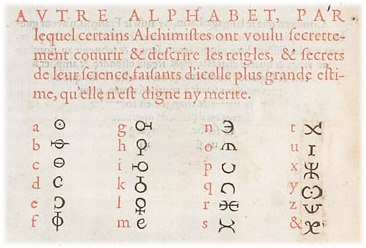 AVTRE ALPHABET, PAR
lequel certains Alchimistes ont voulu secrette-
ment couurir & descrire les reigles, & secrets
de leur science, faisants d'icelle plus grande esti-
me, qu'elle n'est digne ny merite.
a g n t
b h o u
c i p x
d k q y
e l r z
f m s &